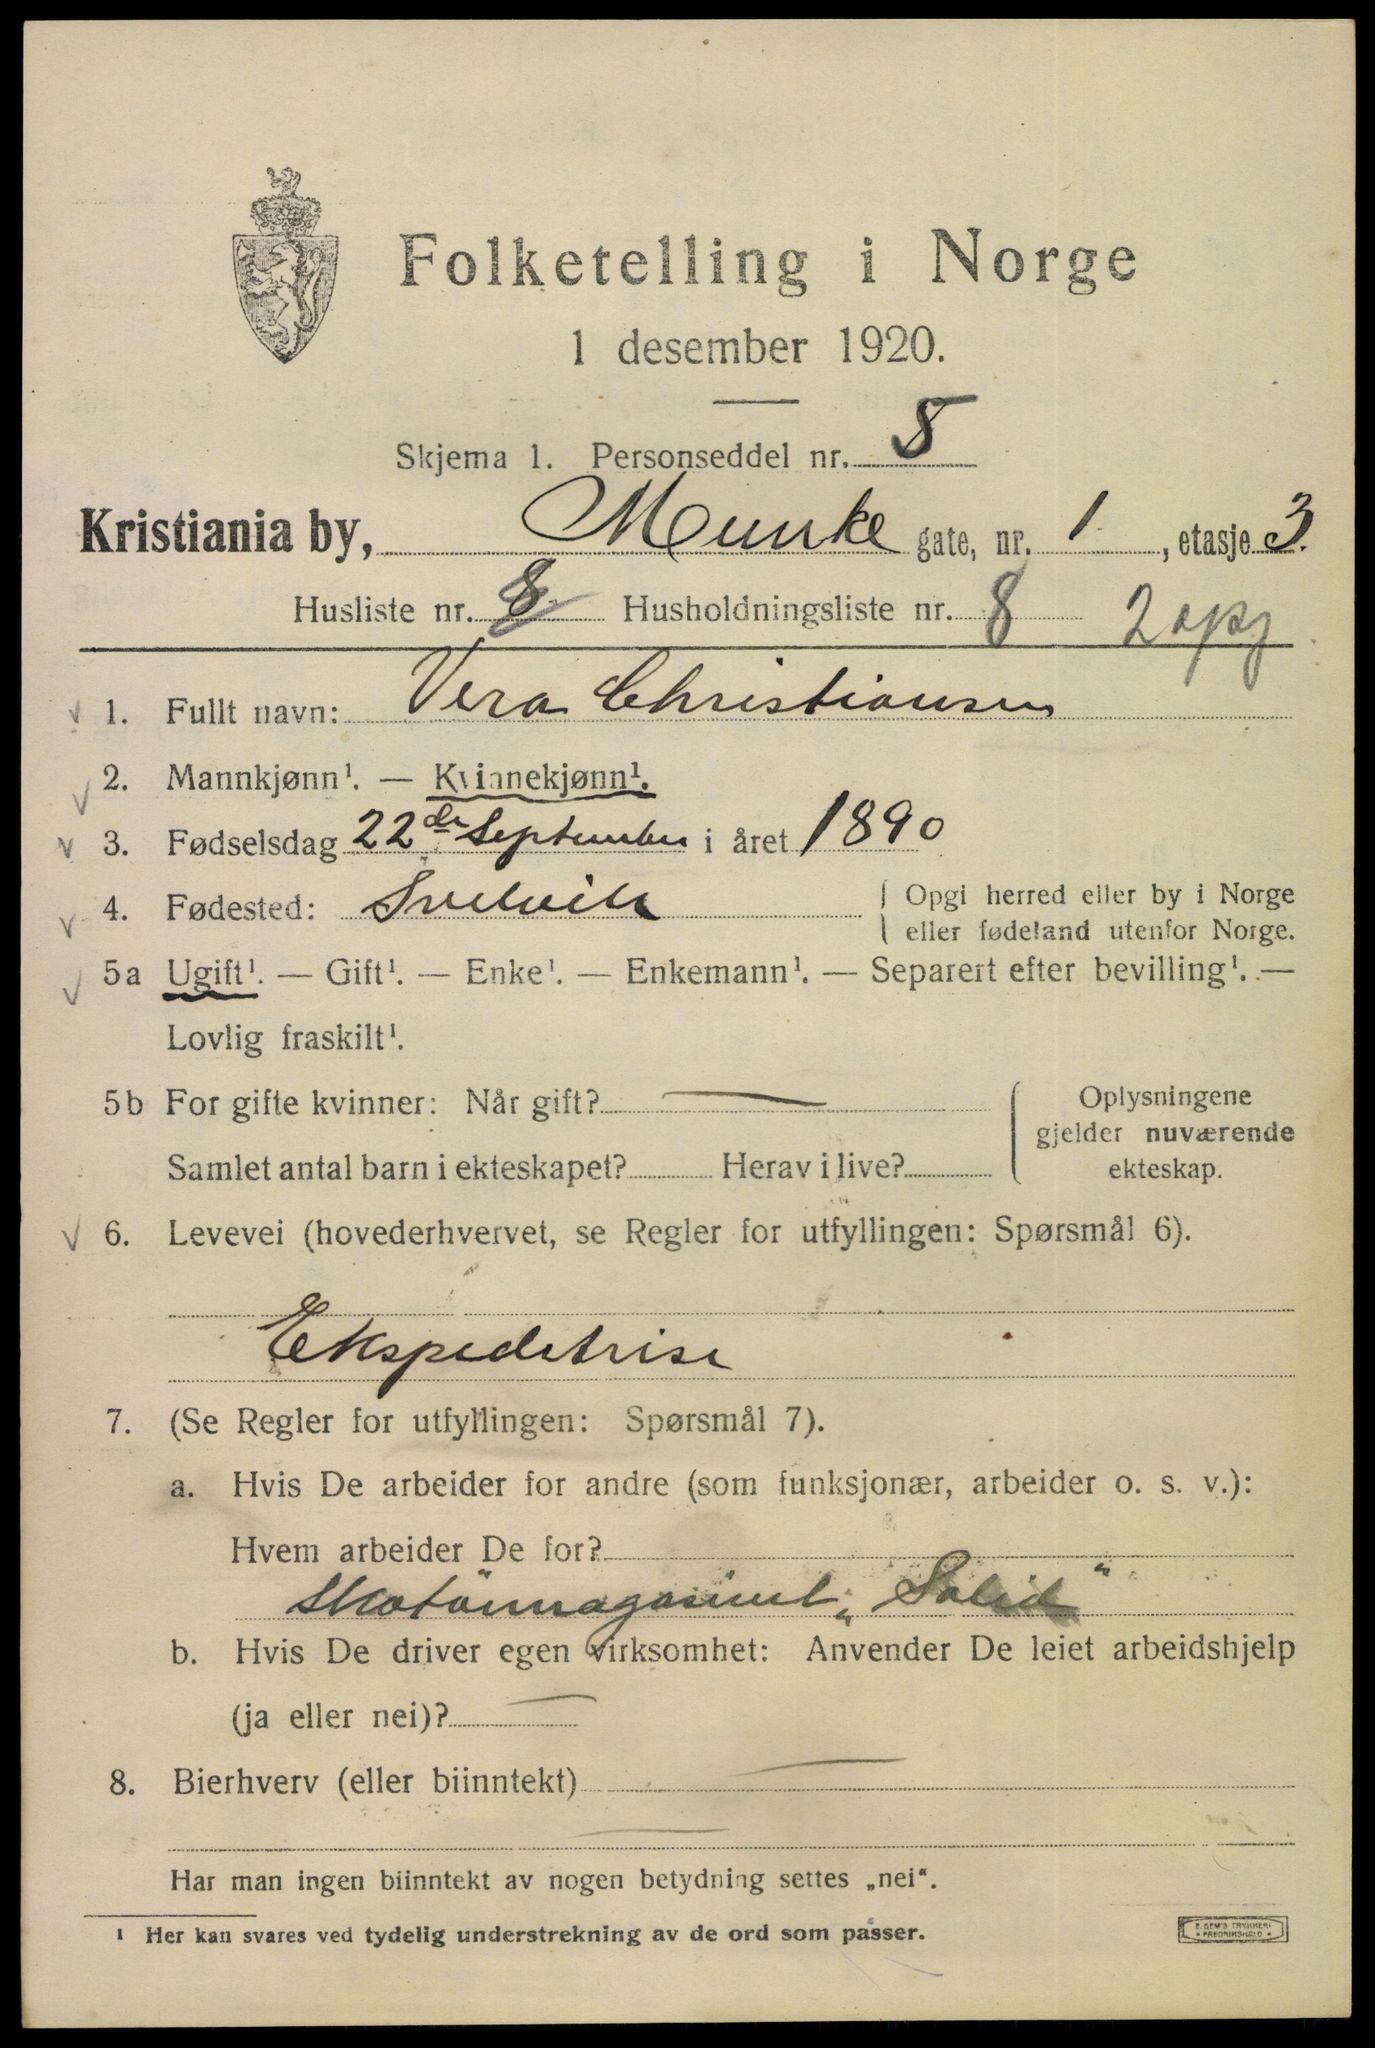 Folketelling i Norge
1 desember 1920.
Skjema 1. Personseddel nr. 8
Kristiania by, Munke gate, nr. 1, etasje 3.
Husliste nr. 8 Husholdningsliste nr. 8 2 opg
1. Fullt navn: Vera Christiansen
2. Mannkjønn¹. — Kvinnekjønn¹.
3. Fødselsdag 22de September i året 1890
4. Fødested: Svelvik { Opgi herred eller by i Norge
eller fødeland utenfor Norge.
5a Ugift¹. — Gift¹. — Enke¹. — Enkemann¹. — Separert efter bevilling¹. —
Lovlig fraskilt¹.
5b For gifte kvinner: Når gift? — Oplysningene
gjelder nuværende
Samlet antal barn i ekteskapet? Herav i live? ekteskap.
6. Levevei (hovederhvervet, se Regler for utfyllingen: Spørsmål 6).
Ekspedetrise
7. (Se Regler for utfyllingen: Spørsmål 7).
a. Hvis De arbeider for andre (som funksjonær, arbeider o. s. v.):
Hvem arbeider De for?
Skotöimagasinet „Solid"
b. Hvis De driver egen virksomhet: Anvender De leiet arbeidshjelp
(ja eller nei)? —
8. Bierhverv (eller biinntekt) —
—
Har man ingen biinntekt av nogen betydning settes „nei“.
¹ Her kan svares ved tydelig understrekning av de ord som passer.
E. SEM'S TRYKKERI
• FREDRIKSHALD •